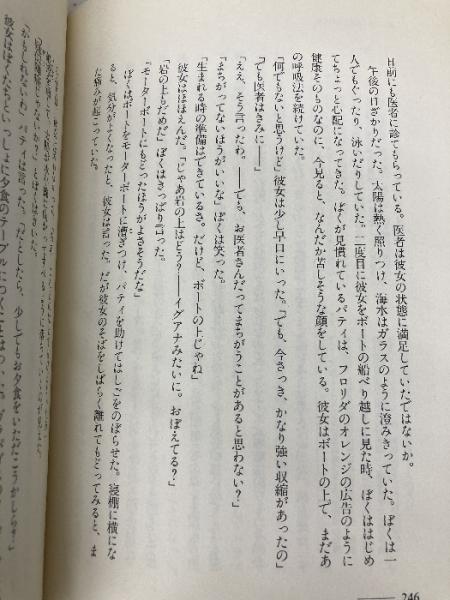 日前にも医者に診てもらっている。医者は彼女の状態に満足していたではないか。
午後の日ざかりだった。太陽は熱く照りつけ、海水はガラスのように澄みきっていた。ぼくは一
人でもぐったり、泳いだりしていた。二度目に彼女をボートの船べり越しに見た時、ぼくははじめ
てちょっと心配になってきた。ぼくが見慣れているパティは、フロリダのオレンジの広告のように
健康そのものなのに、今見ると、なんだか苦しそうな顔をしている。彼女はボートの上で、まだあ
の呼吸法を続けていた。
「何でもないと思うけど」彼女は少し早口にいった。「でも、今さっき、かなり強い収縮があったの」
「でも医者はきみに――」
「ええ、そう言ったわ。――でも、お医者さんだってまちがうことがあると思わない?」
「まちがってないほうがいいな」ぼくは笑った。
「生まれる時の準備はできているさ。だけど、ボートの上じゃね」
彼女はほほえんだ。「じゃあ岩の上はどう?――イグアナみたいに。おぼえてる?」
「岩の上もだめだ」ぼくはきっぱり言った。
「モーターボートにもどったほうがよさそうだな」
ぼくはボートをモーターボートに漕ぎつけ、パティを助けてはしごをのぼらせた。寝棚に横にな
ると、気分がよくなったと、彼女は言った。だが彼女のそばをしばらく離れてもどってみると、ま
た痛みが起こっていた。
246
とぼくはきいた。
「かもしれない」パティは言った。「だとしたら、少しでもお夕食をいただこうかしら?」
彼女はぼくたちといっしょに夕食のテーブルにつくことは